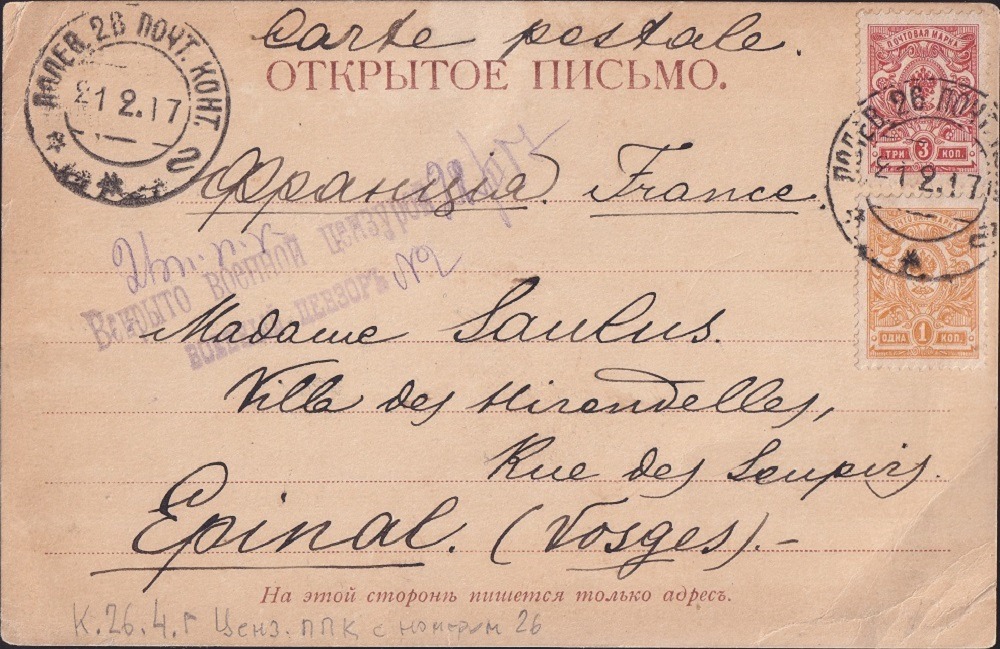 Carte postale.
ОТКРЫТОЕ ПИСЬМО.
ПОЛЕВ. 26 ПОЧТ. КОНТ.
21 2.17
ПОЧТОВАЯ МАРКА
ТРИ 3 КОП.
ПОЛЕВ. 26 ПОЧТ.
21 2.17
ПОЧТОВАЯ МАРКА
ОДНА 1 КОП.
Франція. France.
Вскрыто военной цензурой
ВОЕННЫЙ ЦЕНЗОРЪ №2
Madame Saulus.
Villa des Hirondelles,
Rue des Soupirs.
Epinal. (Vosges).-
На этой сторонѣ пишется только адресъ.
К.26.4.г Ценз. ППК с номером 26